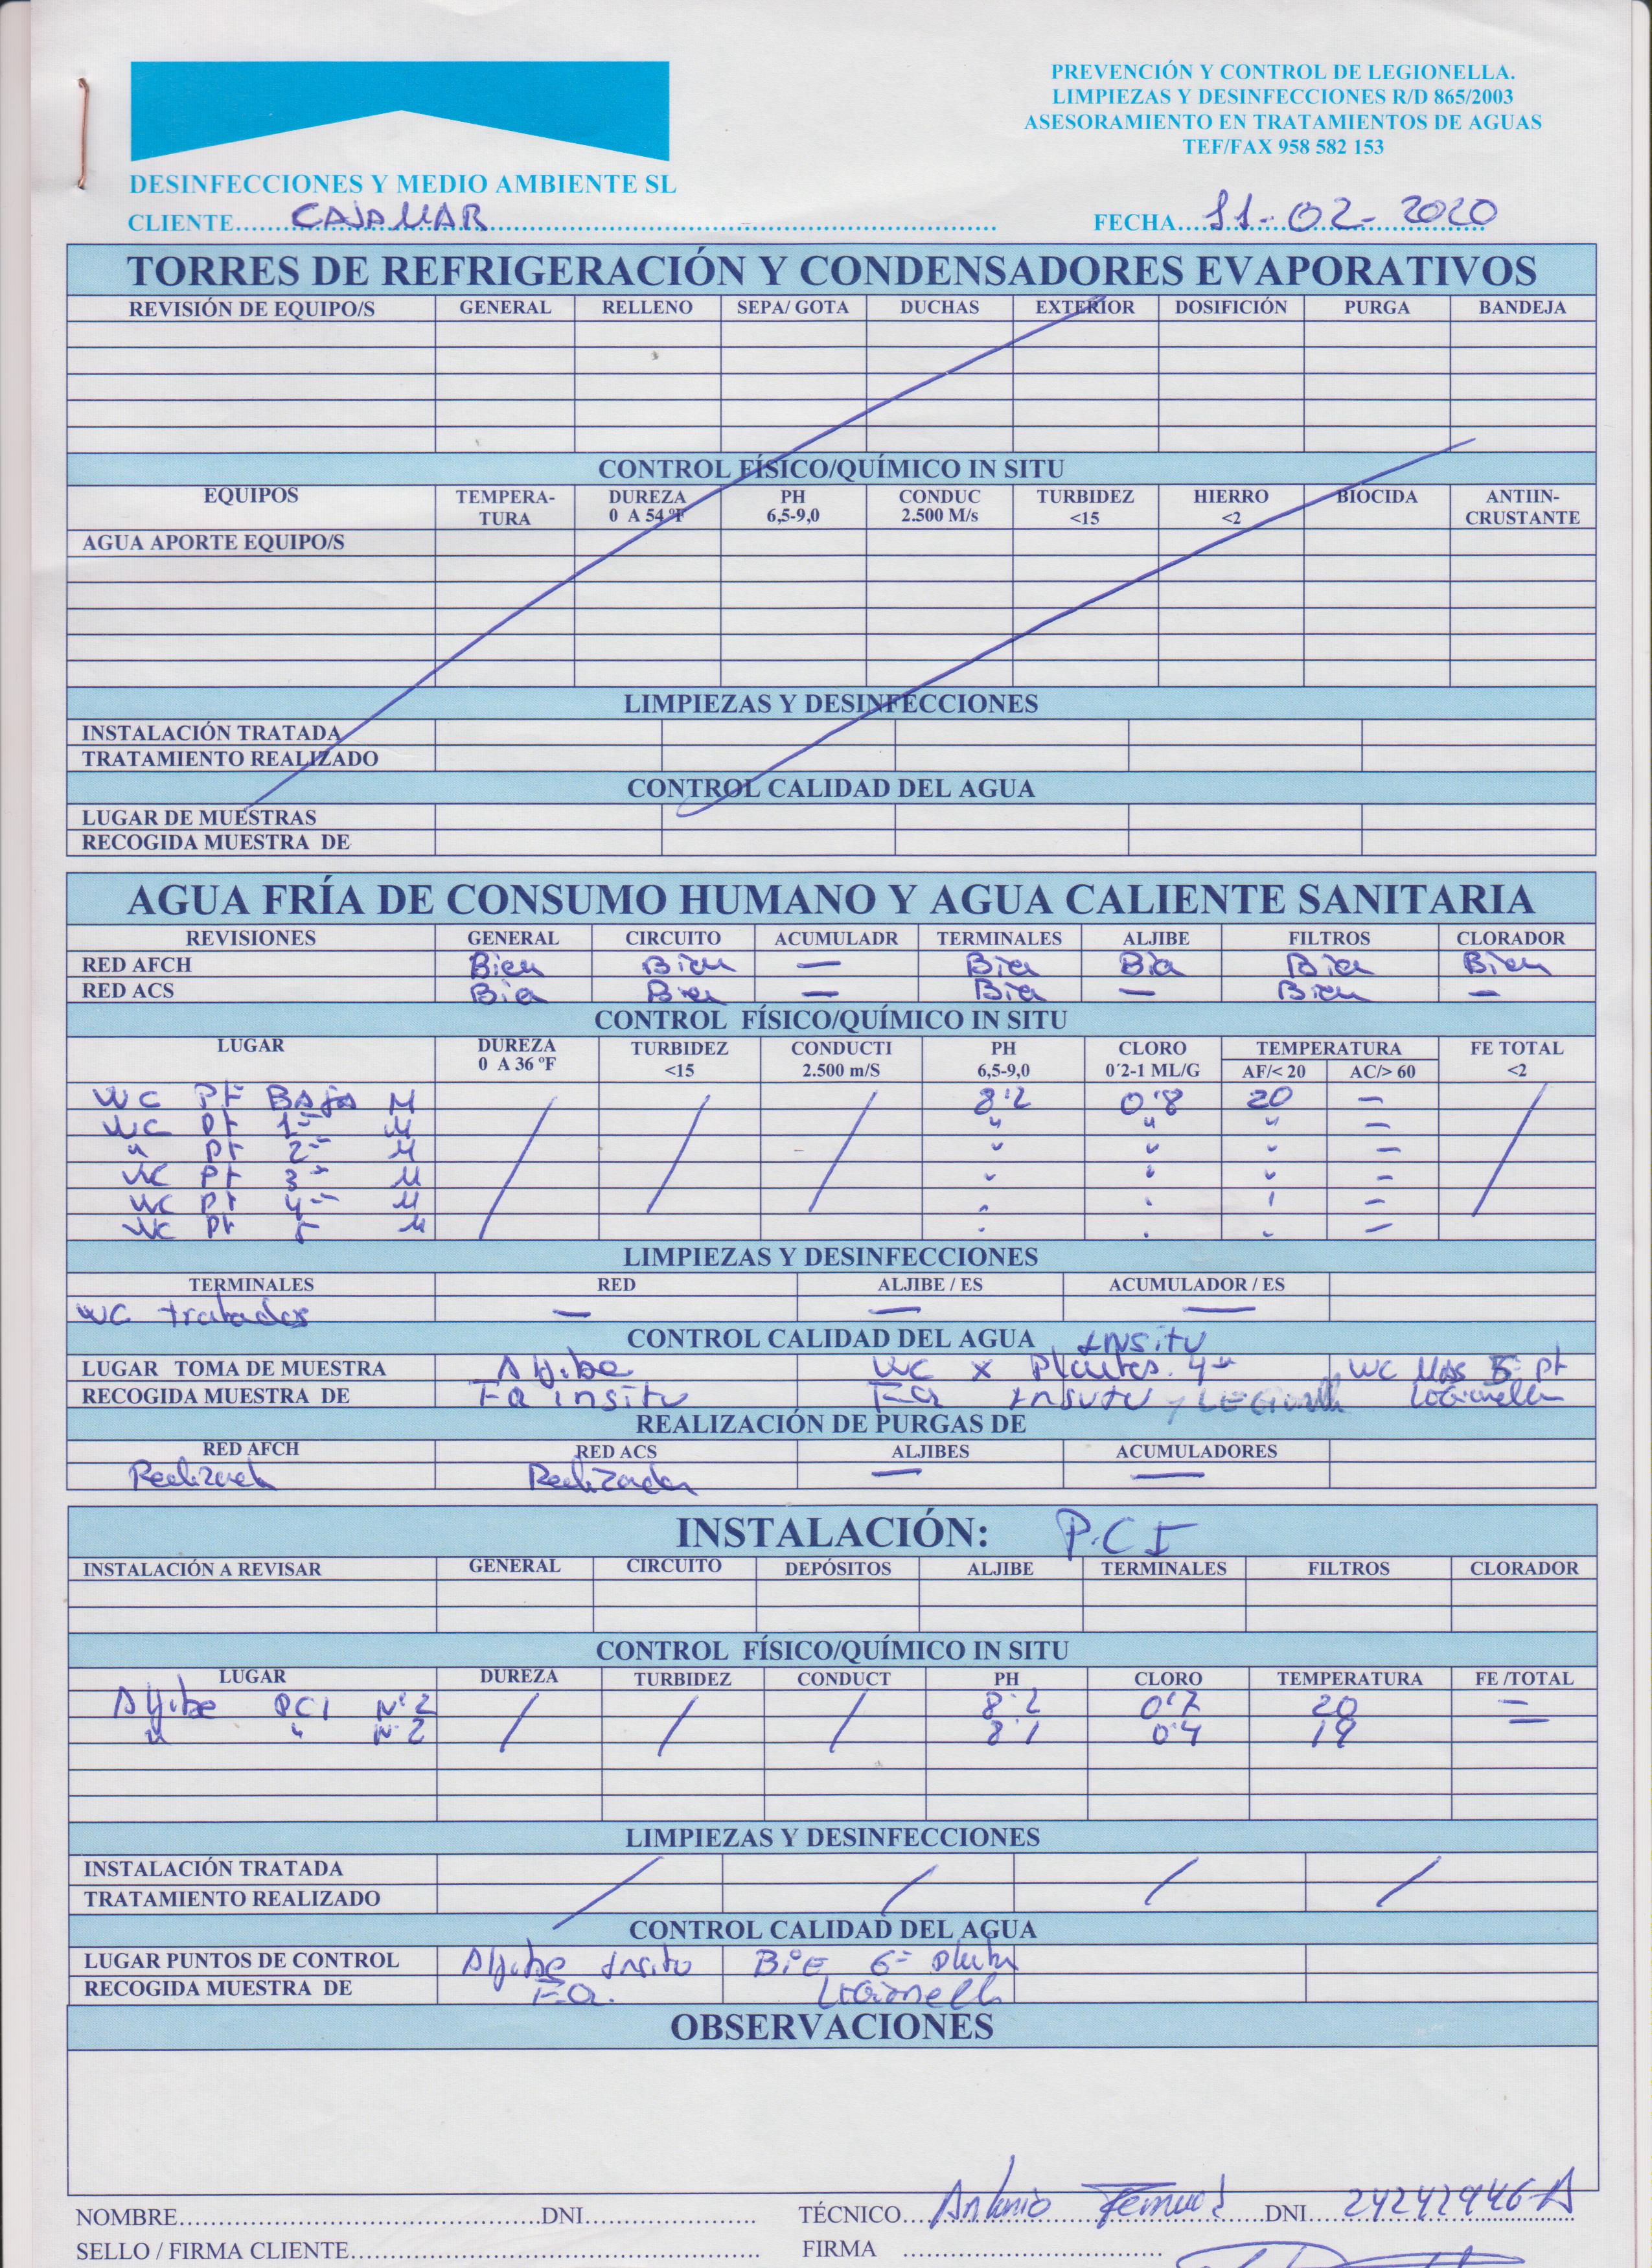 PREVENCIÓN Y CONTROL DE LEGIONELLA.
LIMPIEZAS Y DESINFECCIONES R/D 865/2003
ASESORAMIENTO EN TRATAMIENTOS DE AGUAS
TEF/FAX 958 582 153
DESINFECCIONES Y MEDIO AMBIENTE SL
CLIENTE CAJAMAR FECHA 11-02-2020
TORRES DE REFRIGERACIÓN Y CONDENSADORES EVAPORATIVOS
REVISIÓN DE EQUIPO/S GENERAL RELLENO SEPA/ GOTA DUCHAS EXTERIOR DOSIFICIÓN PURGA BANDEJA
CONTROL FÍSICO/QUÍMICO IN SITU
EQUIPOS TEMPERA- DUREZA PH CONDUC TURBIDEZ HIERRO BIOCIDA ANTIIN-
TURA 0 A 54 ºF 6,5-9,0 2.500 M/s <15 <2 CRUSTANTE
AGUA APORTE EQUIPO/S
LIMPIEZAS Y DESINFECCIONES
INSTALACIÓN TRATADA
TRATAMIENTO REALIZADO
CONTROL CALIDAD DEL AGUA
LUGAR DE MUESTRAS
RECOGIDA MUESTRA DE
AGUA FRÍA DE CONSUMO HUMANO Y AGUA CALIENTE SANITARIA
REVISIONES GENERAL CIRCUITO ACUMULADR TERMINALES ALJIBE FILTROS CLORADOR
RED AFCH Bien Bien — Bien Bien Bien Bien
RED ACS Bien Bien — Bien — Bien —
CONTROL FÍSICO/QUÍMICO IN SITU
LUGAR DUREZA TURBIDEZ CONDUCTI PH CLORO TEMPERATURA FE TOTAL
0 A 36 ºF <15 2.500 m/S 6,5-9,0 0´2-1 ML/G AF/< 20 AC/> 60 <2
WC Pt Baja M 8'2 0'8 20 —
WC Pt 1ª M " " " —
" Pt 2ª M " " " —
WC Pt 3ª M " " " —
WC Pt 4ª M " " " —
WC Pt 5 M " " " —
LIMPIEZAS Y DESINFECCIONES
TERMINALES RED ALJIBE / ES ACUMULADOR / ES
WC tratados — — —
CONTROL CALIDAD DEL AGUA INSITU
LUGAR TOMA DE MUESTRA Aljibe WC x Plantas 4ª WC 5ª Pt
RECOGIDA MUESTRA DE FQ insitu FQ Insitu y LEGionella LeGionella
REALIZACIÓN DE PURGAS DE
RED AFCH RED ACS ALJIBES ACUMULADORES
Realizada Realizada — —
INSTALACIÓN: P.C I
INSTALACIÓN A REVISAR GENERAL CIRCUITO DEPÓSITOS ALJIBE TERMINALES FILTROS CLORADOR
CONTROL FÍSICO/QUÍMICO IN SITU
LUGAR DUREZA TURBIDEZ CONDUCT PH CLORO TEMPERATURA FE /TOTAL
Aljibe PCI Nº 2 / / / 8'2 0'7 20 —
" " Nº 2 8'1 0'4 19 —
LIMPIEZAS Y DESINFECCIONES
INSTALACIÓN TRATADA
TRATAMIENTO REALIZADO
CONTROL CALIDAD DEL AGUA
LUGAR PUNTOS DE CONTROL Aljibe Insitu BiE 6ª planta
RECOGIDA MUESTRA DE F.Q. LeGionella
OBSERVACIONES
NOMBRE DNI TÉCNICO Antonio DNI 24242946-A
SELLO / FIRMA CLIENTE FIRMA